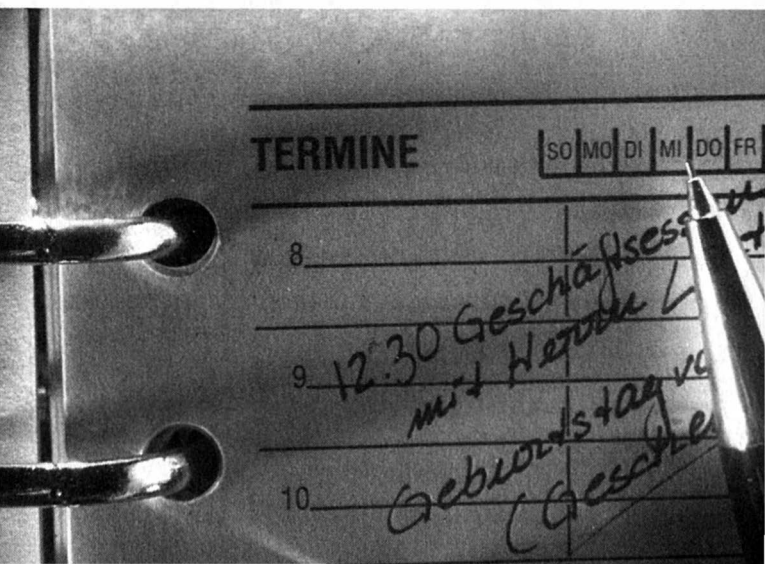 TERMINE
SO MO DI MI DO FR
8
12.30 Geschäftsessen
mit Herrn
9
Geburtstag
10